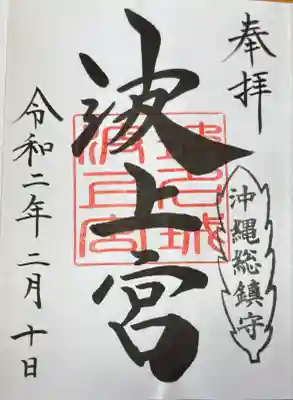 奉拝
沖縄総鎮守
波上宮
令和二年二月十日